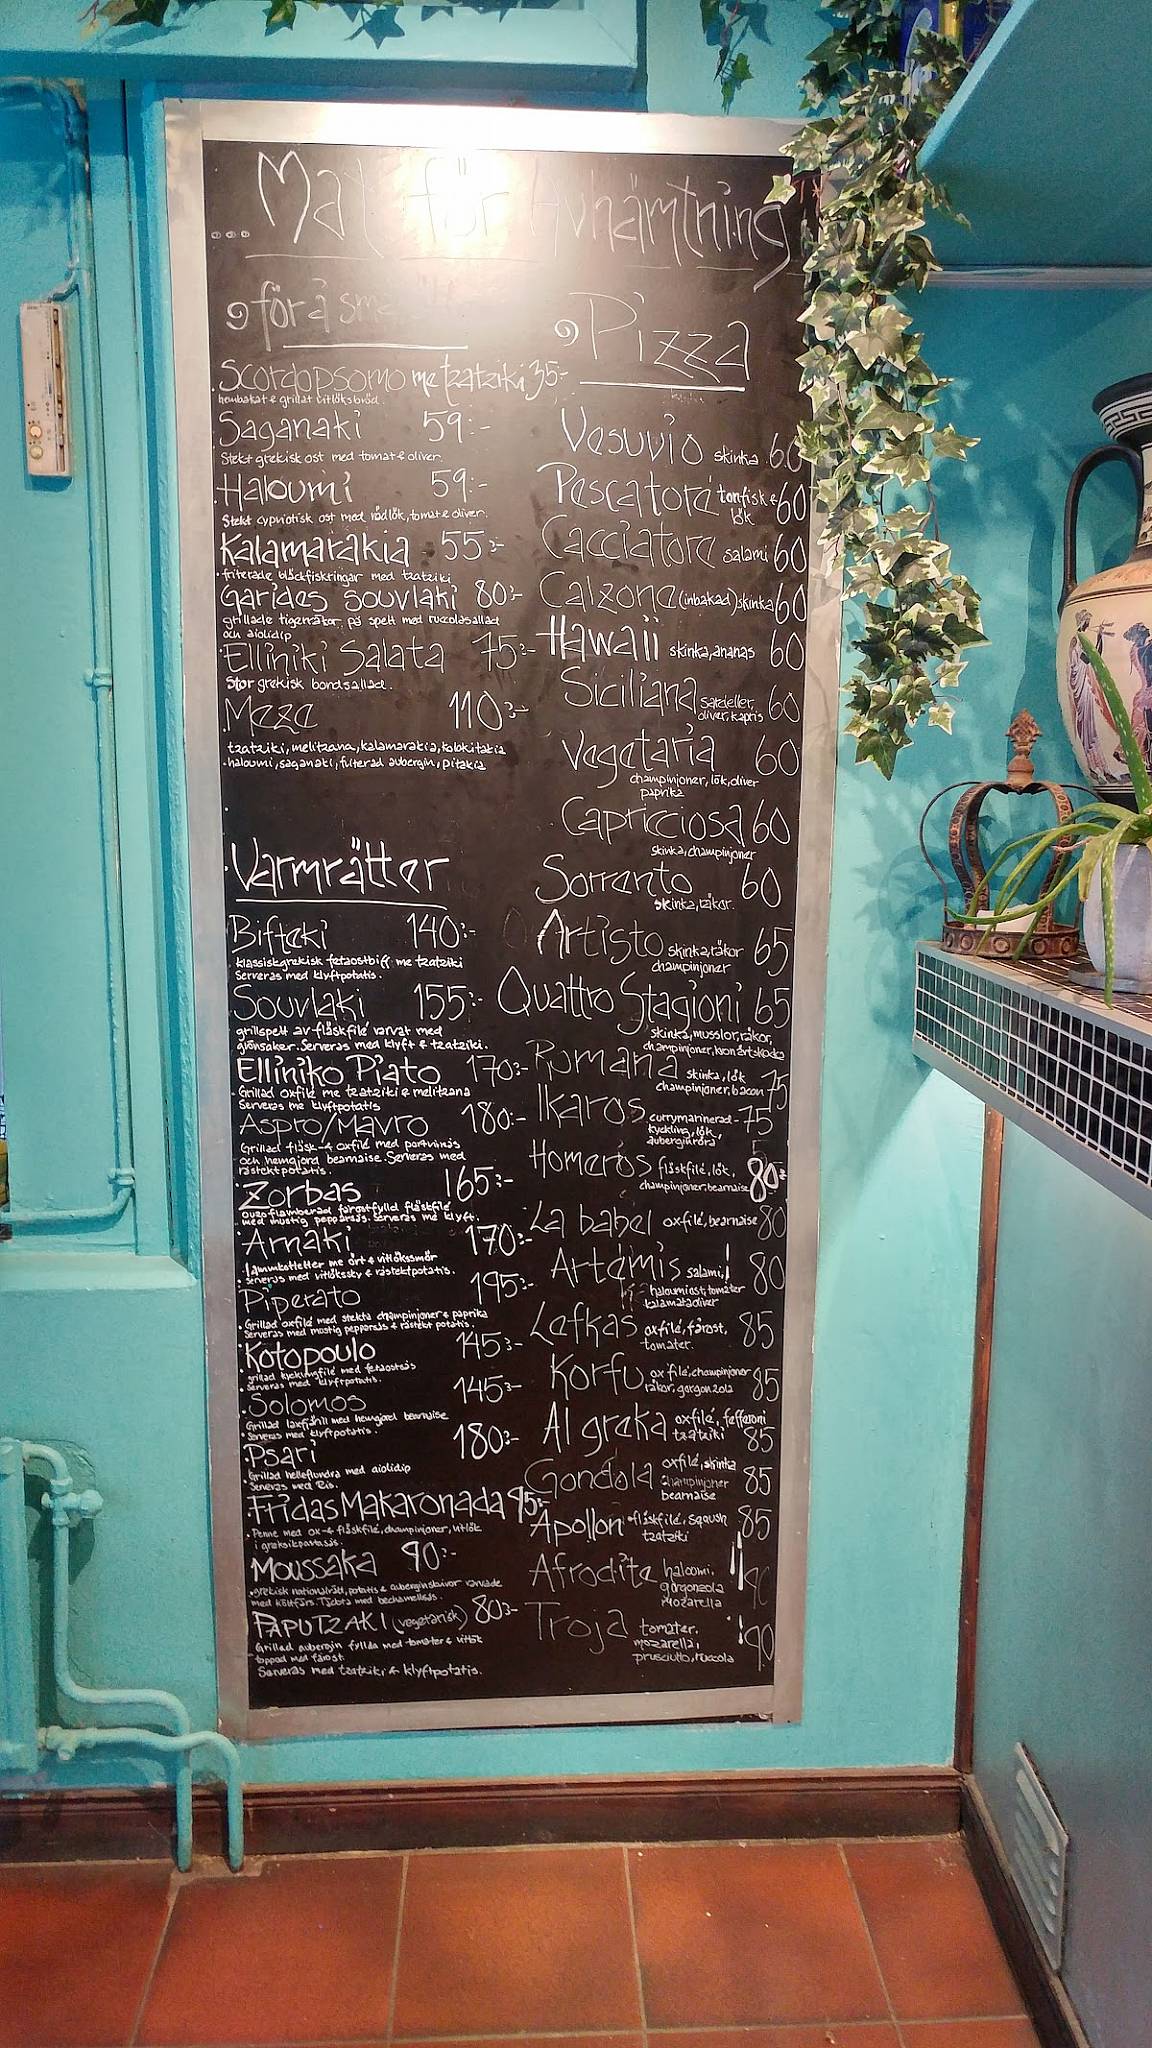 ...Mat för Avhämtning
för å sma
Scordopsomo me tzatziki 35:-
hembakat & grillat vitlöksbröd.
Saganaki 59:-
Stekt grekisk ost med tomat & oliver.
Haloumi 59:-
Stekt cypriotisk ost med rödlök, tomat & oliver.
Kalamarakia 55:-
friterade bläckfiskringar med tzatziki
Garides souvlaki 80:-
grillade tigerräkor på spett med ruccolasallad
och aiolidip
Elliniki Salata 75:-
Stor grekisk bondsallad.
Meze 110:-
tzatziki, melitzana, kalamarakia, kolokitakia
haloumi, saganaki, friterad aubergin, pitakia
Varmrätter
Bifteki 140:-
klassiskgrekisk fetaostbiff me tzatziki
Serveras med klyftpotatis.
Souvlaki 155:-
grillspett av fläskfilé varvat med
grönsaker. Serveras med klyft & tzatziki.
Elliniko Piato 170:-
Grillad oxfilé me tzatziki & melitzana
Serveras me klyftpotatis
Aspro/Mavro 180:-
Grillad fläsk- & oxfilé med portvinsås
och hemgjord bearnaise. Serveras med
råstektpotatis.
Zorbas 165:-
ouzoflamberad fårostfylld fläskfilé
med mustig pepparsås. Serveras me klyft.
Arnaki 170:-
lammkotletter me ört & vitlökssmör
serveras med vitlökssky & råstektpotatis.
Piperato 195:-
Grillad oxfilé med stekta champinjoner & paprika
Serveras med mustig pepparsås & råstekt potatis.
Kotopoulo 145:-
grillad kycklingfilé med fetaostsås
serveras med klyftpotatis.
Solomos 145:-
Grillad laxfjäril med hemgjord bearnaise
Serveras med klyftpotatis.
Psari 180:-
Grillad helleflundra med aiolidip
Serveras med Ris.
Fridas Makaronada 95:-
Penne med ox- & fläskfilé, champinjoner, vitlök
i gräddpastasås.
Moussaka 90:-
grekisk nationalrätt, potatis & auberginskivor varvade
med köttfärs. Toppta med bechamelsås.
PAPUTZAKI (vegetarisk) 80:-
Grillad aubergin fylld med tomater & vitlök
toppad med fårost.
Serveras med tzatziki & klyftpotatis.
Pizza
Vesuvio skinka 60
Pescatore tonfisk &
lök 60
Cacciatore salami 60
Calzone (inbakad) skinka 60
Hawaii skinka, ananas 60
Siciliana sardeller,
oliver, kapris 60
Vegetaria 60
champinjoner, lök, oliver
paprika
Capricciosa 60
skinka, champinjoner
Sorrento 60
skinka, räkor.
Artisto skinka, räkor 65
champinjoner
Quattro Stagioni 65
skinka, musslor, räkor,
champinjoner, kronärtskocka
Romana skinka, lök
champinjoner, bacon 75
Ikaros currymarinerad 75
kyckling, lök,
auberginröra
Homeros fläskfilé, lök,
champinjoner, bearnaise 80:-
La babel oxfilé, bearnaise 80
Artemis salami, 80
haloumiost, tomater
kalamataoliver
Lefkas oxfilé, fårost, 85
tomater.
Korfu oxfilé, champinjoner
räkor, gorgonzola 85
Al greka oxfilé, fefferoni
tzatziki 85
Gondola oxfilé, skinka 85
champinjoner
bearnaise
Apollon fläskfilé, squash 85
tzatziki
Afrodite haloumi, 90
gorgonzola
mozarella
Troja tomater, 90
mozarella,
prusciutto, ruccola